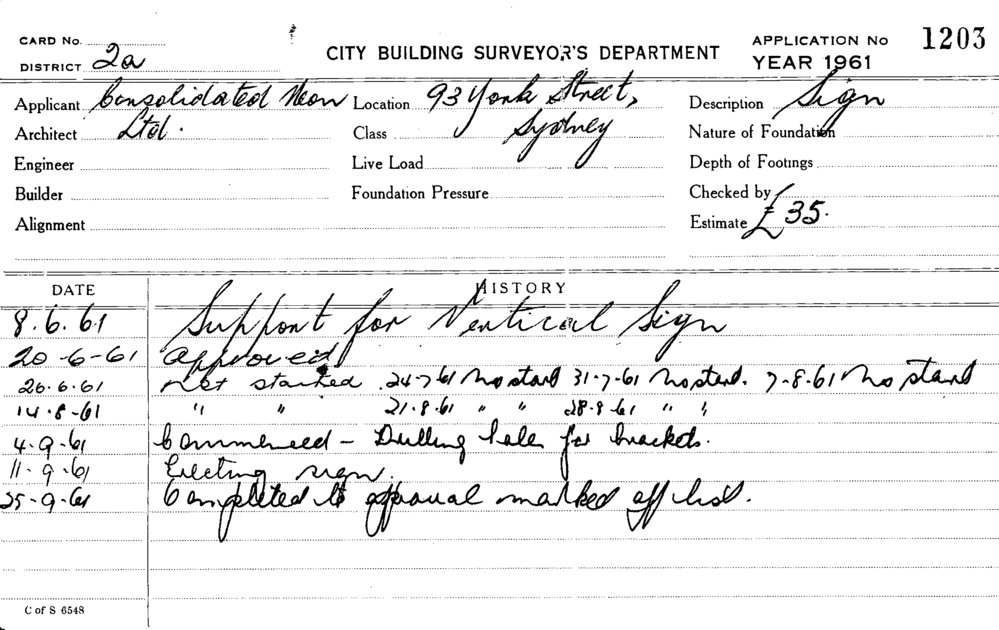 CARD No.
CITY BUILDING SURVEYOR'S DEPARTMENT
APPLICATION No 1203
DISTRICT 2a
YEAR 1961
Applicant Consolidated Neon Location 93 York Street, Description Sign
Architect Ltd. Class Sydney Nature of Foundation
Engineer Live Load Depth of Footings
Builder Foundation Pressure Checked by
Alignment Estimate £35.
DATE HISTORY
8.6.61 Support for Vertical Sign
20-6-61 Approved
26.6.61 Not started 24-7-61 No start 31-7-61 No start. 7-8-61 No start
14-8-61 " " 21.8.61 " " 28.8.61 " "
4-9-61 Commenced - Drilling holes for brackets.
11-9-61 Erecting sign.
25-9-61 Completed to approval marked off list.
C of S 6548